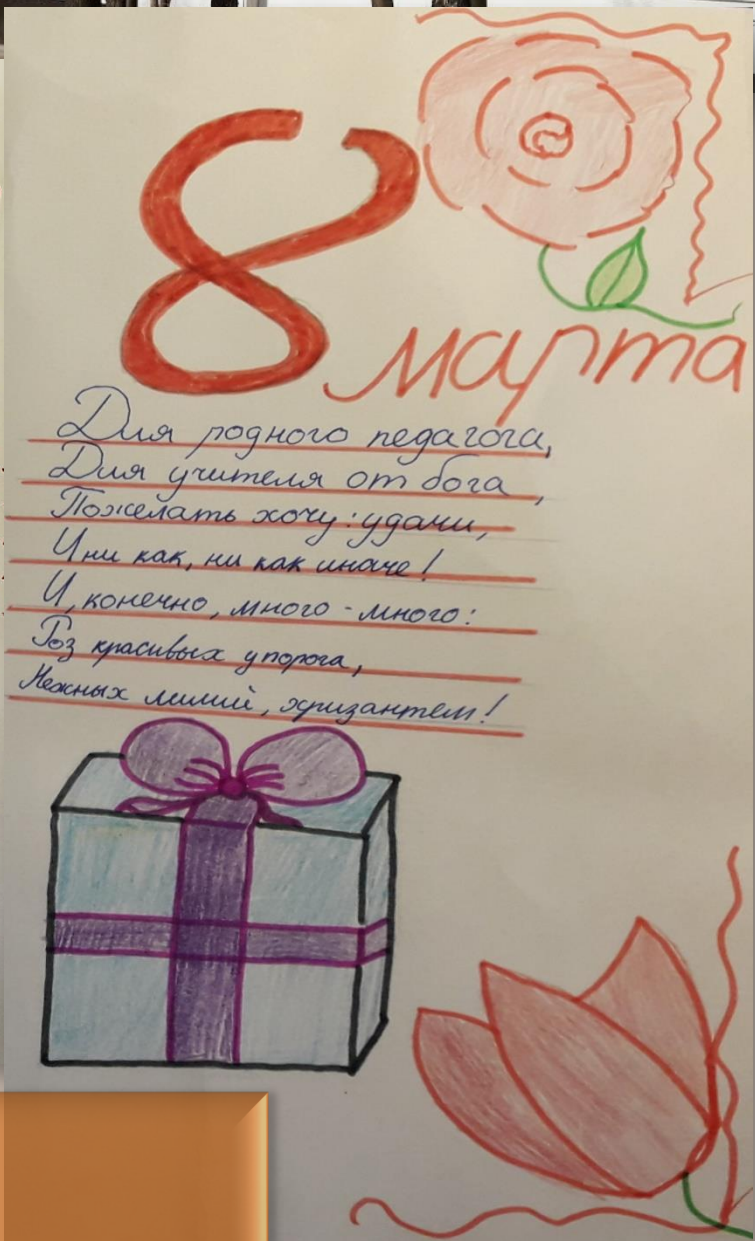 8
марта
Для родного педагога,
Для учителя от бога,
Пожелать хочу: удачи,
И ни как, ни как иначе!
И, конечно, много - много:
Роз красивых у порога,
Нежных лилий, хризантем!